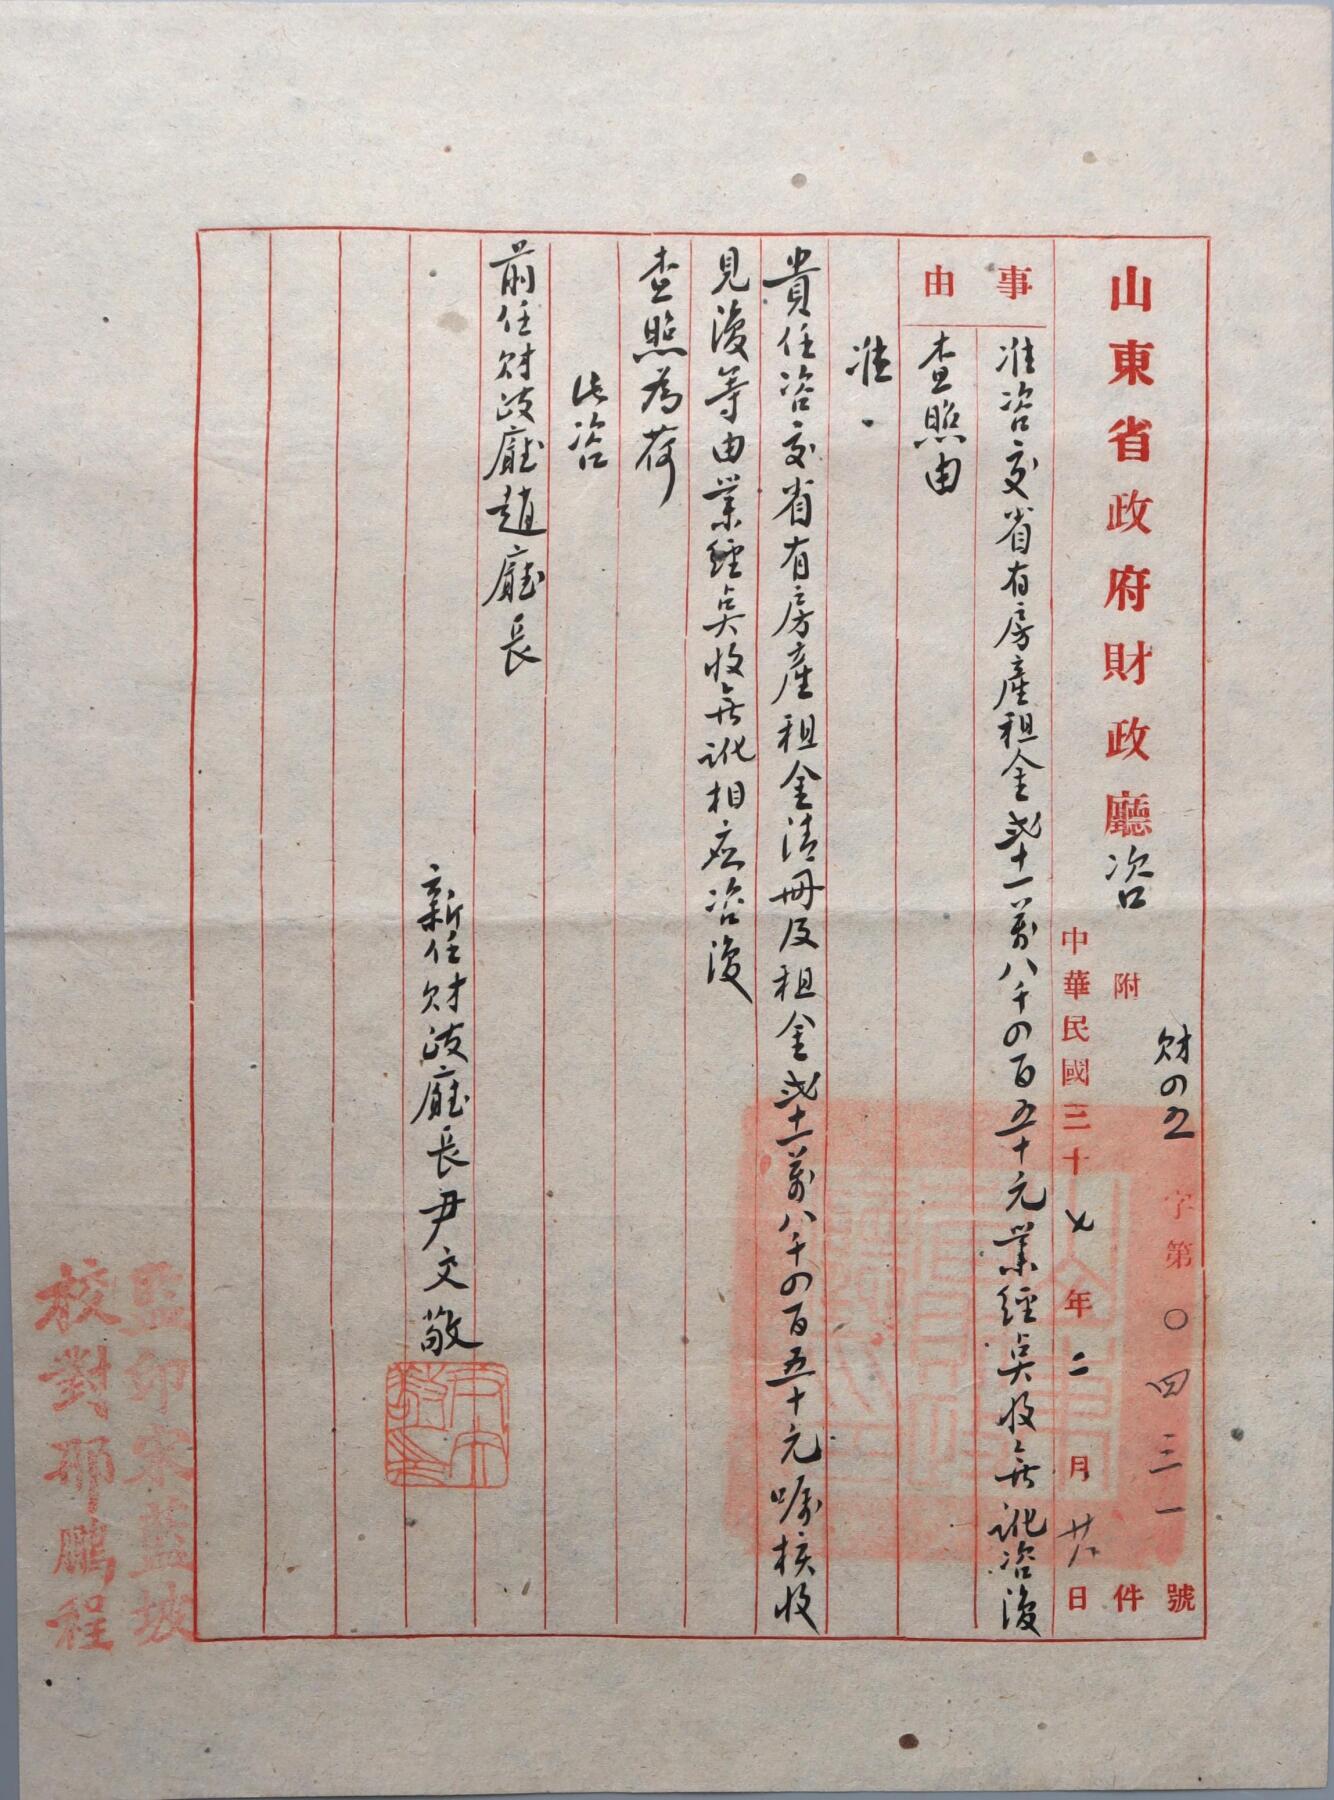 山東省政府財政廳咨
財四五字第〇四三一號
附件
中華民國三十七年二月廿八日
事由
准咨交省有房產租金弍十一萬八千四百五十元業經点收無訛咨復
查照由
准
貴任咨交省有房產租金清冊及租金弍十一萬八千四百五十元囑核收
見復等由業經点收無訛相應咨復
查照為荷
此咨
前任財政廳趙廳長
新任財政廳長尹文敬
監印宋藍坡
校對邢鵬程